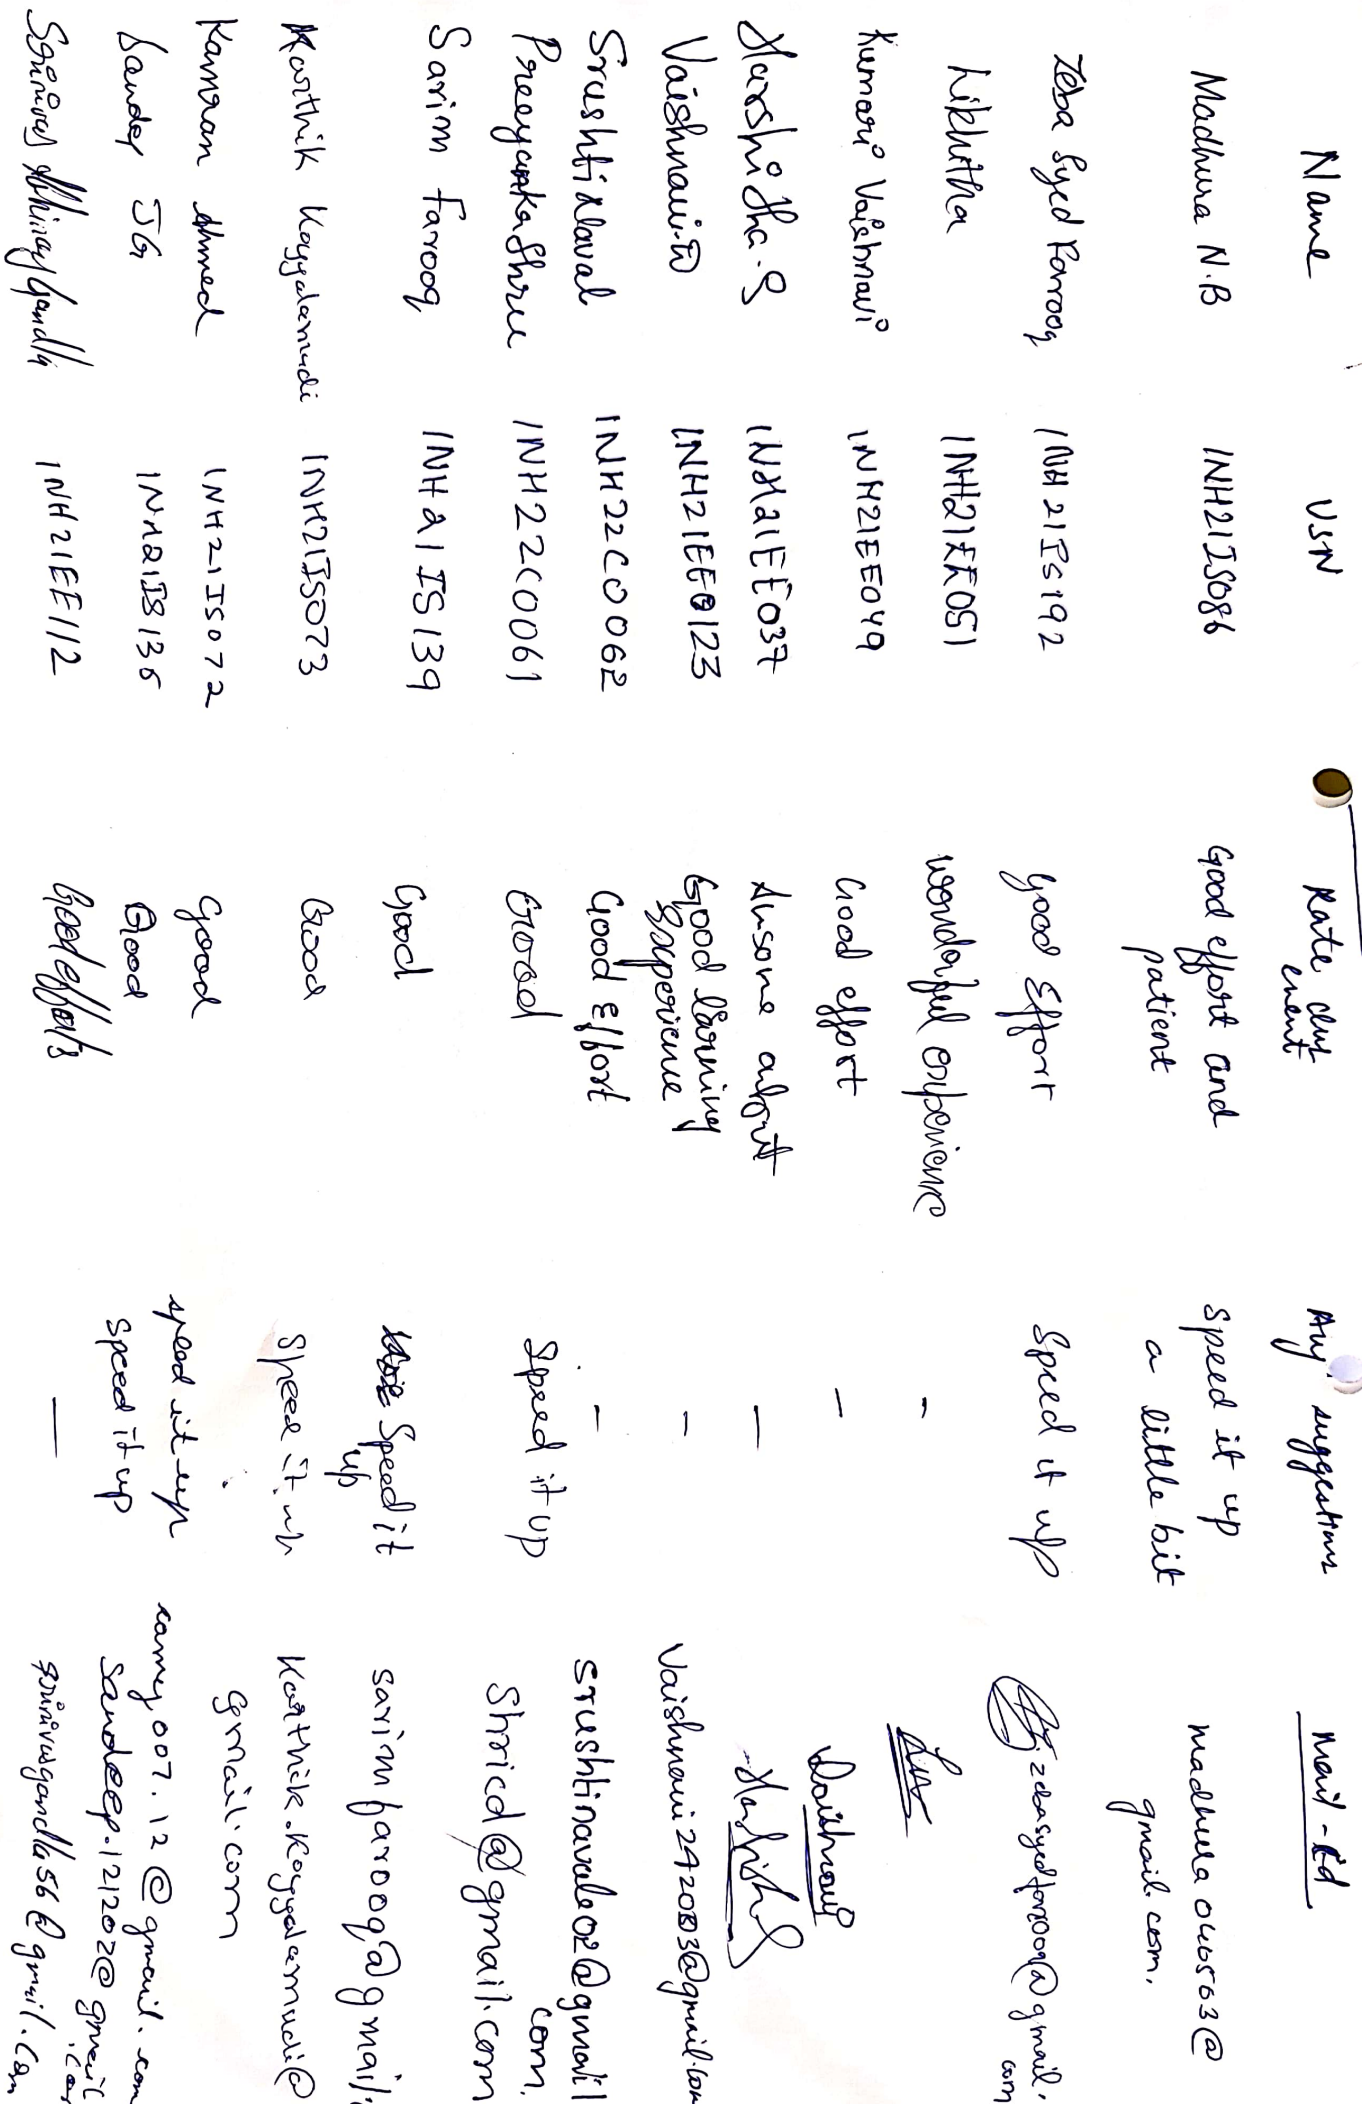 Name USN Rate club event Any suggestions Mail-Id
Madhura N.B 1NH21IS086 Good effort and patient Speed it up a little bit madhura040503@gmail.com.
Zeba Syed Farooq 1NH21IS192 Good Effort Speed it up zebasyedfarooq@gmail.com
Likhitha 1NH21EE051 wonderful experience -
Kumari Vaishnavi 1NH21EE049 Good effort - Vaishnavi
Harshitha.S 1NH21EE037 Awsome about - Harshitha
Vaishnavi.D 1NH21EE0123 Good learning Experience - Vaishnavi242003@gmail.com
Srushti Naval 1NH22CO062 Good Effort - srushtinavale02@gmail.com.
Preeyanka Shree 1NH22CO061 Good Speed it up Shricd@gmail.com
Sarim Farooq 1NH21IS139 Good Speed it up sarimfarooq@gmail.
Karthik Kayyalamudi 1NH21IS073 Good Speed it up Karthik.Kayyalamudi@gmail.com
Kamran Ahmed 1NH21IS072 Good speed it up camy007.12@gmail.com
Sandeep JG 1NH21IS136 Good Speed it up sandeep.121202@gmail.com
Srinivas Abhinay Gandla 1NH21EE112 Good efforts — srinivasgandla56@gmail.com